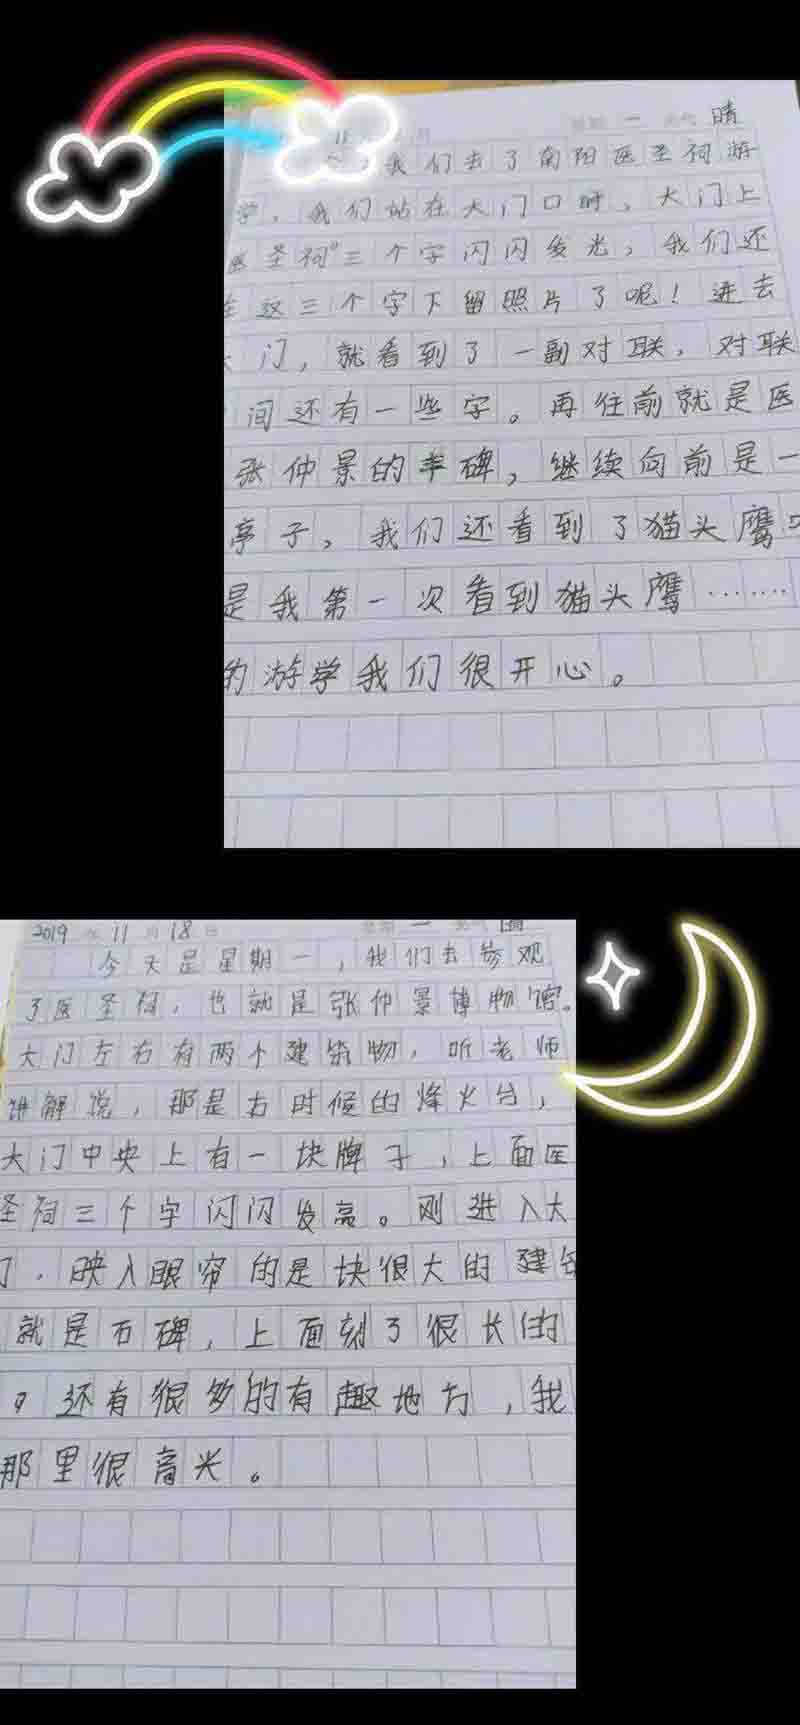 11 一 晴
我们去了南阳医圣祠游
学，我们站在大门口时，大门上
医圣祠"三个字闪闪发光，我们还
在这三个字下留照片了呢！进去
门，就看到了一副对联，对联
间还有一些字。再往前就是医
张仲景的丰碑，继续向前是一
亭子，我们还看到了猫头鹰
是我第一次看到猫头鹰……
的游学我们很开心。
2019 年 11 月 18 日 星期 一 天气 晴
今天是星期一，我们去参观
了医圣祠，也就是张仲景博物馆。
大门左右有两个建筑物，听老师
讲解说，那是古时候的烽火台，
大门中央上有一块牌子，上面医
圣祠三个字闪闪发亮。刚进入大
门．映入眼帘的是块很大的建筑
就是石碑，上面刻了很长的
还有很多的有趣地方，我
那里很高兴。